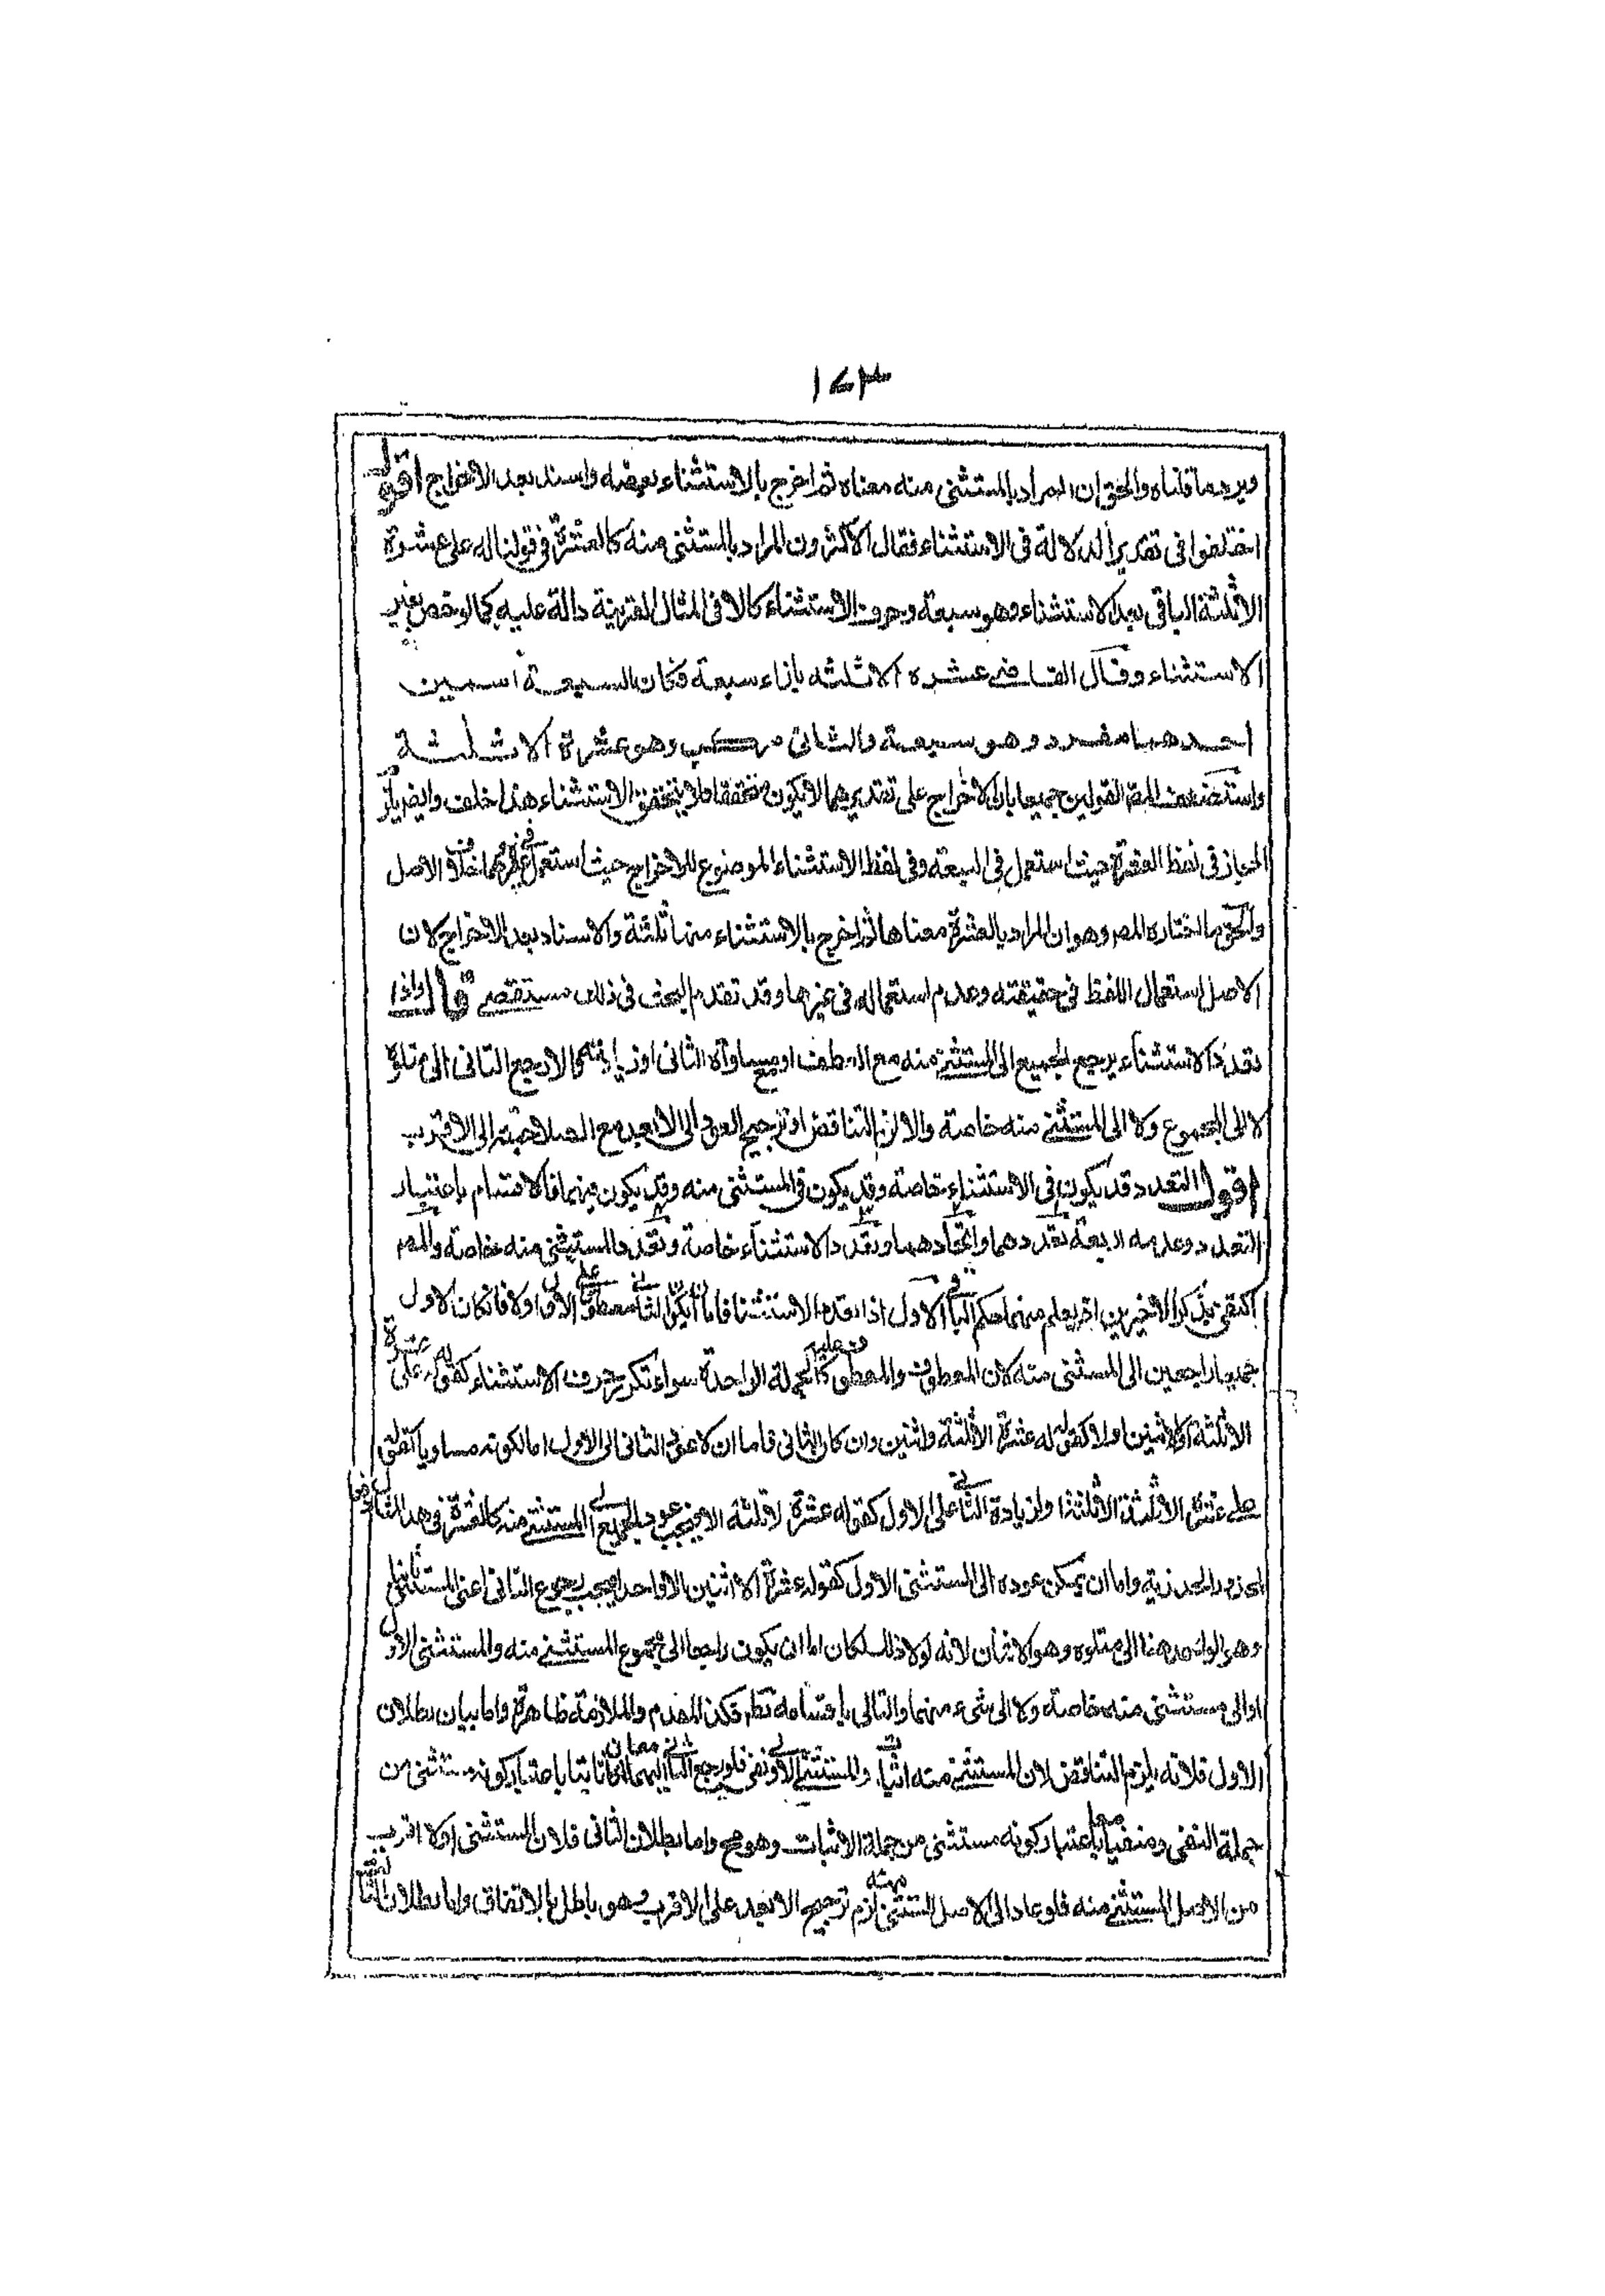 ١٤٣
ويرد ما قلناه والحق ان المراد بالمستثنى منه معناه ثم اخرج بالاستثناء بعضه واسند بعد الاخراج اقول
اختلفوا فى تقدير الدلالة فى الاستثناء فقال الاكثرون المراد بالمستثنى منه كالعشرة فى قولنا له على عشرة
الا ثلثة الباقى بعد الاستثناء وهو سبعة وحرف الاستثناء كالا فى المثال القرينة دالة عليه كما لو خص بغير
الاستثناء وقال القاضى عشره الا ثلثه بازاء سبعة فكان للسبعة اسمين
احدهما مفرد وهو سبعة والثانى مركب وهو عشرة الا ثلثة
واستضعف المصم القولين جميعا بان الاخراج على تقديرهما لا يكون متحققا فلا يتحقق الاستثناء هذا خلف وايضا يلزم
المجاز فى لفظ العشرة حيث استعمل فى السبعة وفى لفظ الاستثناء الموضوع للاخراج حيث استعمل فى غيره وهما خلاف الاصل
والحق ما اختاره المصم وهو ان المراد بالعشرة معناها ثم اخرج بالاستثناء منها ثلثة والاسناد بعد الاخراج لان
الاصل استعمال اللفظ فى حقيقته وعدم استعماله فى غيرها وقد تقدم البحث فى ذلك مستقصى قال واذا
تعدد الاستثناء يرجع الجميع الى المستثنى منه مع العطف او مع مساواة الثانى او زيادته والا رجع الثانى الى متلوه
لا الى المجموع ولا الى المستثنى منه خاصة والا لزم التناقض او ترجيح العود الى الابعد مع الصلاحية الى الاقرب
اقول التعدد قد يكون فى الاستثناء خاصة وقد يكون فى المستثنى منه وقد يكون فيهما فالاقسام باعتبار
التعدد وعدمه اربعة تعددهما واتحادهما وتعدد الاستثناء خاصة وتعدد المستثنى منه خاصة والمصم
اكتفى بذكر الاخيرين اذ يعلم منهما حكم الباقى الاول اذا تعدد الاستثناء فاما ان يكون الثانى معطوفا على الاول او لا فان كان الاول
جميعا راجعين الى المستثنى منه لان المعطوف والمعطوف عليه كالجملة الواحدة سواء تكرر حرف الاستثناء كقوله له على عشرة
الا ثلثة والا اثنين او لا كقوله له عشرة الا ثلثة واثنين وان كان الثانى فاما ان لا عود الثانى الى الاول اما لكونه مساويا كقوله
على عشرة الا ثلثة الا ثلثة او لزيادة الثانى على الاول كقوله عشرة الا ثلثة الا فيجب عود الجميع الى المستثنى منه كالعشرة فى هذا المثال
واما ان يمكن عوده الى المستثنى الاول كقوله عشرة الا اثنين الا واحدا فيجب رجوع الثانى اعنى المستثنى ثانيا
وهو الواحد هنا الى متلوه وهو الاثنان لانه لولا ذلك لكان اما ان يكون راجعا الى مجموع المستثنى منه والمستثنى الاول
او الى مستثنى منه خاصة ولا الى شىء منهما والتالى باقسامه بطل فكذا المقدم والملازمة ظاهرة واما بيان بطلان
الاول فلانه يلزم التناقض لان المستثنى منه اثبات والمستثنى الاول نفى فلو رجع الثانى اليهما معا لكان ثابتا باعتبار كونه مستثنى من
جملة النفى ومنفيا معا باعتبار كونه مستثنى من جملة الاثبات وهو مح واما بطلان الثانى فلان المستثنى اولا اقرب
من الاصل المستثنى منه فلو عاد الى الاصل المستثنى منه لزم ترجيح الابعد على الاقرب وهو باطل بالاتفاق واما بطلان الثالث